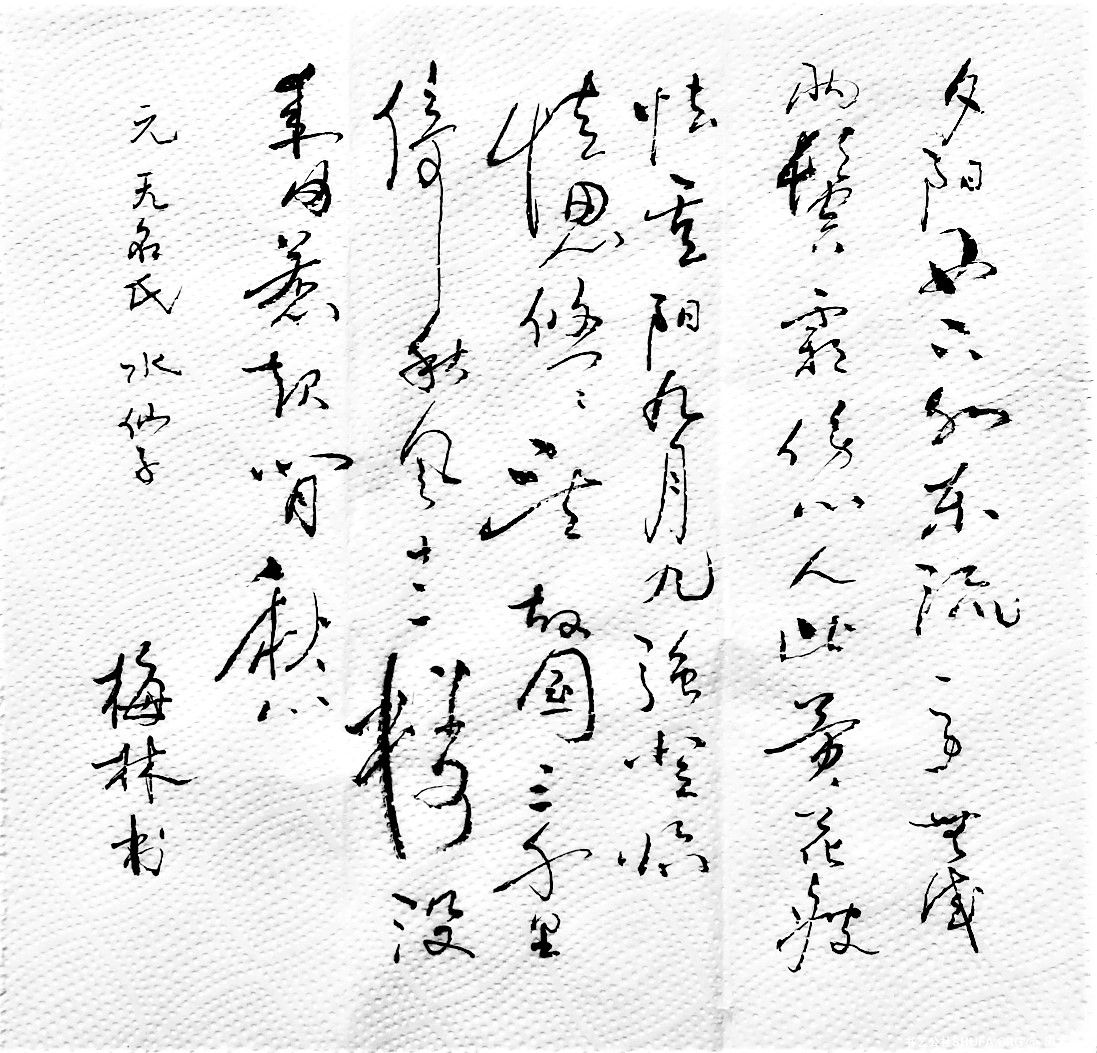 夕阳西下水东流一事無成
两鬓霜伤心人比黄花瘦
怯重阳九月九强登临
情思悠悠望故国三千里
倚秋风十二楼没
来由惹起閒愁
元 无名氏 水仙子 梅林书